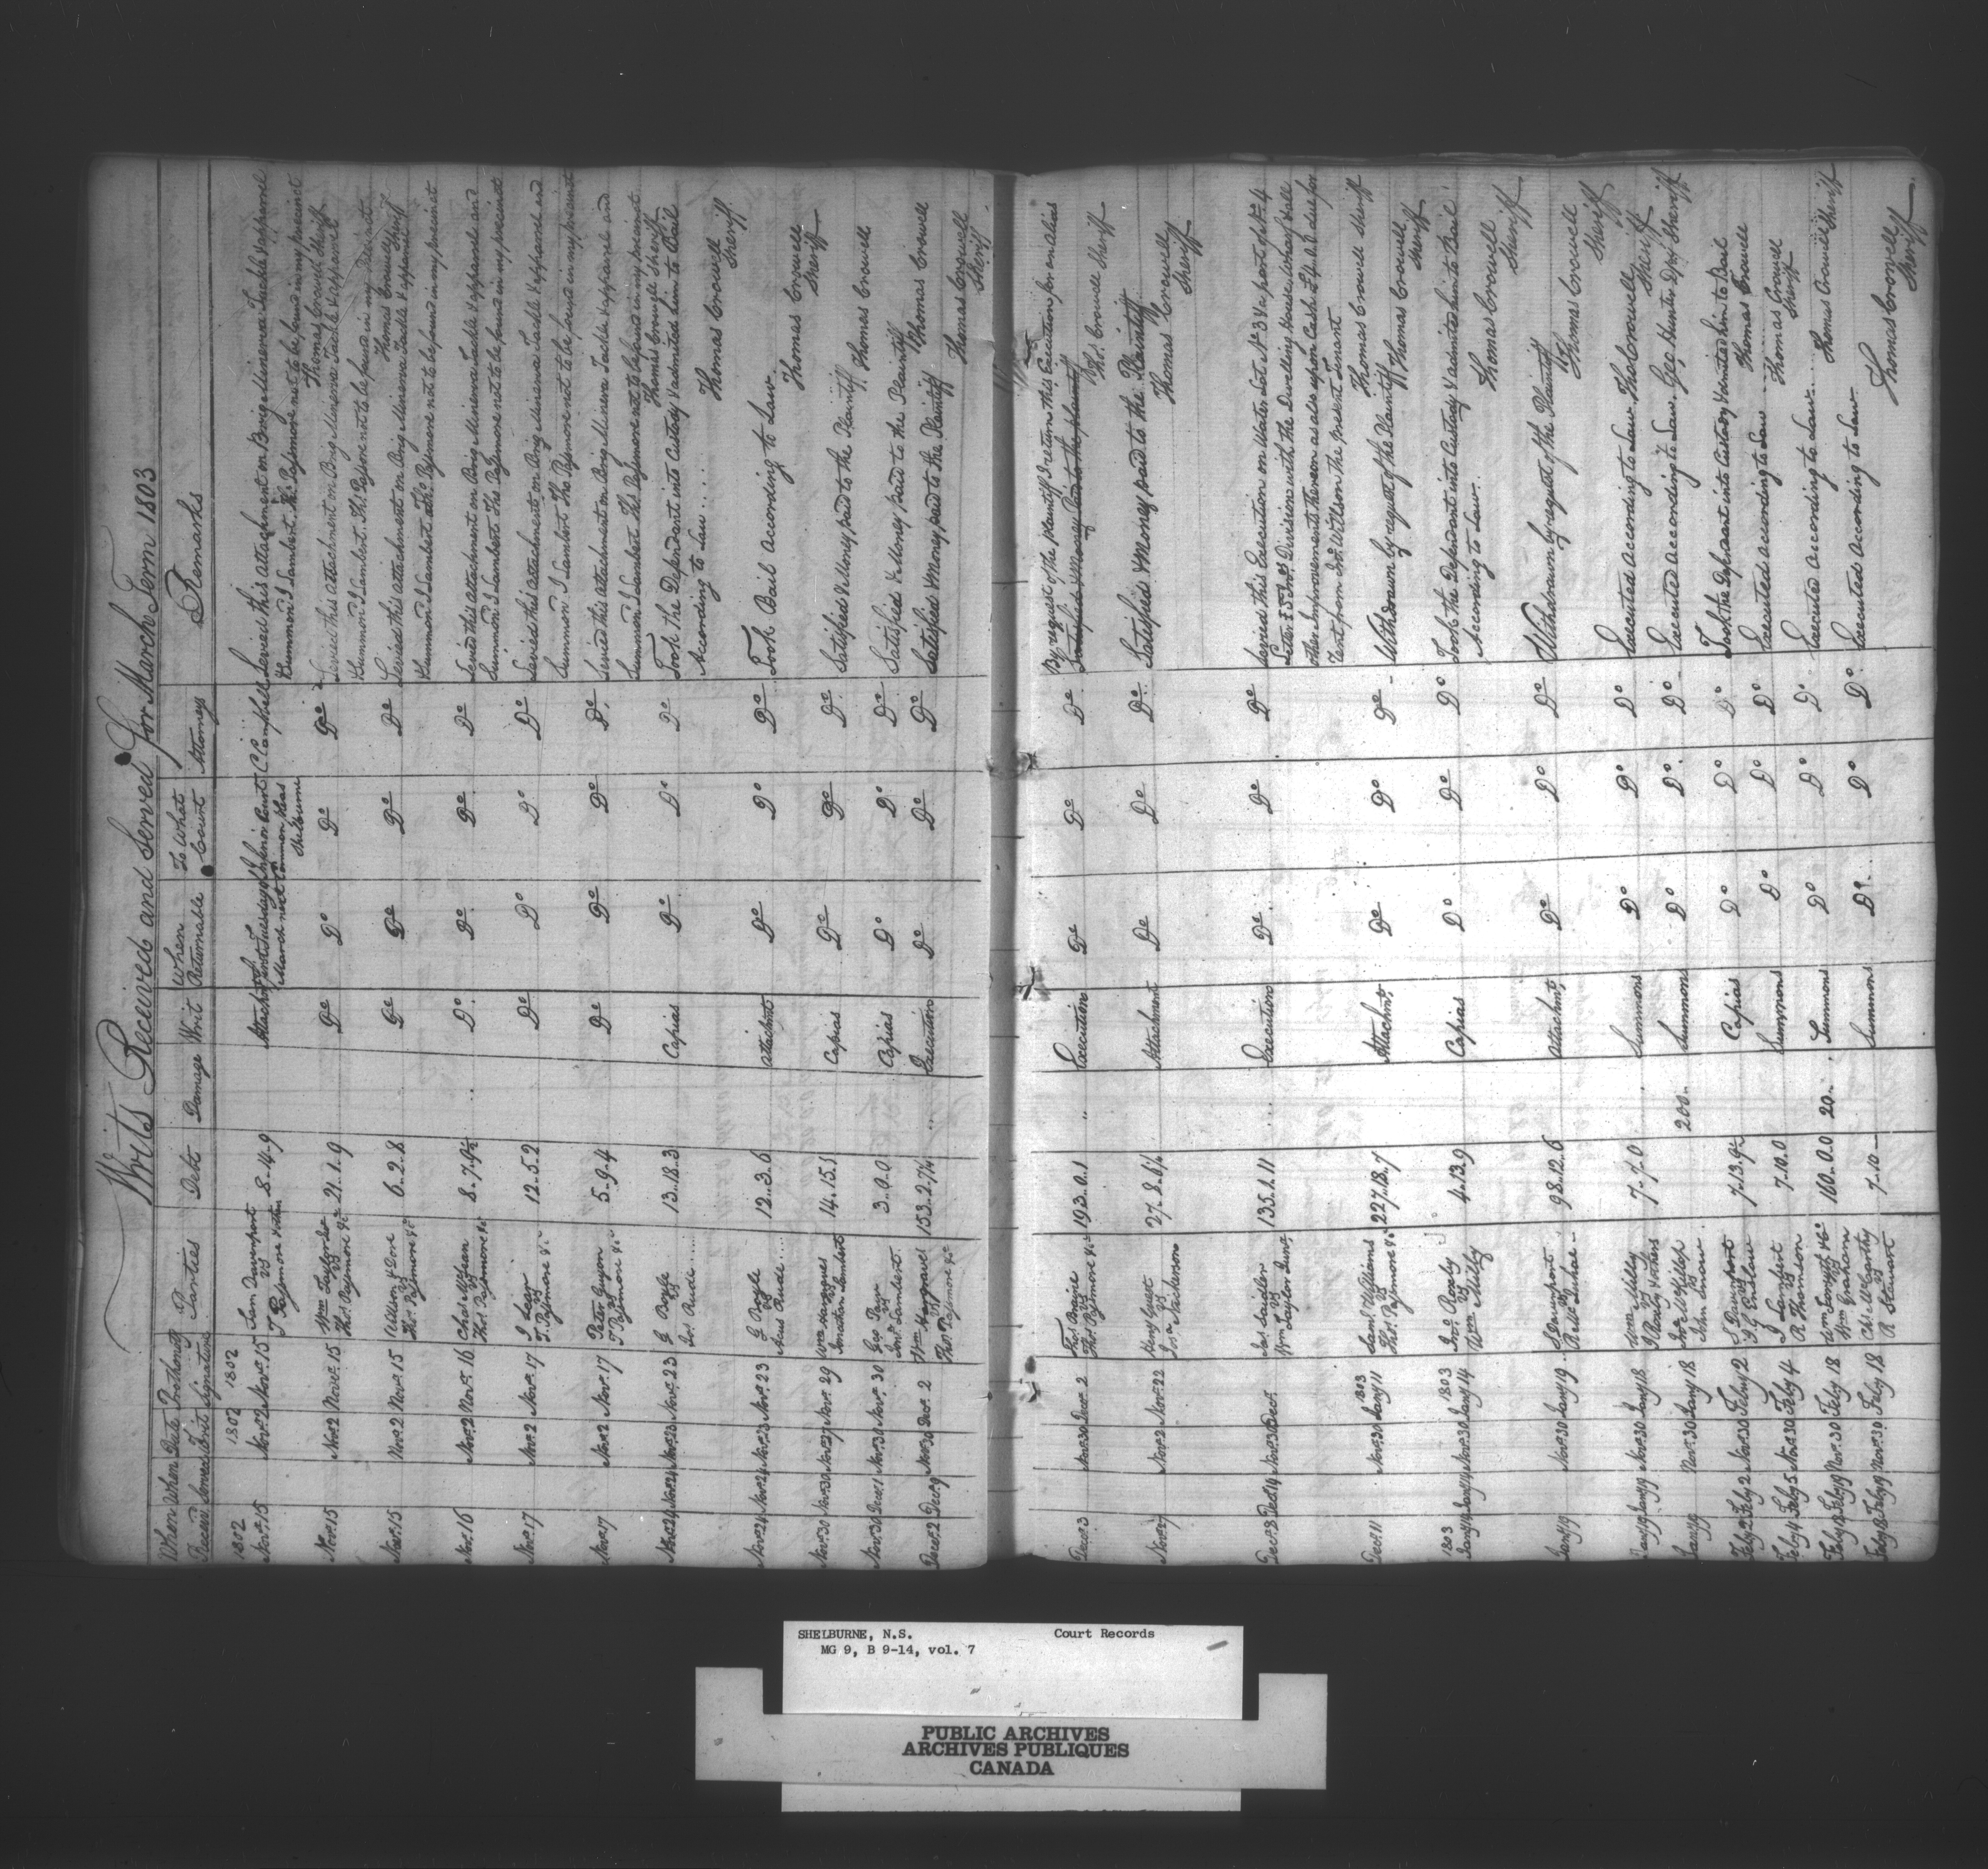 Writs Received and Served for March Term 1803
When Receivd | When Served | Date of Writ | Prothonotys Signature | Parties | Debt | Damage | Writ | When Returnable | To What Court | Attorneys | Remarks
1802 1802 1802
Novr. 15 | Novr. 2 | Novr. 15 | Sam Davenport vs T Pajimore & others | 8..4..9 | Attachmt | first Tuesday of March next | Inferior Court Common Pleas Shelburne | C Campbell | Levied this attachment on Brig Minerva Tackle & apparel
& Summon'd J Lambert. Thos. Pajimore not to be found in my precinct
Thomas Crowell Sheriff
Novr. 15 | Novr. 2 | Novr. 15 | Wm Taylor vs Thos. Pajimore &c | 21..1..9 | Do | Do | Do | Do | Levied this attachment on Brig Minerva Tackle & apparel
& Summon'd J Lambert. Thos. Pajimore not to be found in my Precinct
Thomas Crowell Sheriff
Novr. 15 | Novr. 2 | Novr. 15 | Allison & Dore vs Thos. Pajimore &c | 6..2..8 | Do | Do | Do | Do | Levied this attachment on Brig Minerva Tackle & apparel
& Summon'd J Lambert Thos Pajimore not to be found in my precinct
Novr. 16 | Novr. 2 | Novr. 16 | Chas McBean vs Thos. Pajimore &c | 8..7..9½ | Do | Do | Do | Do | Levied this attachment on Brig Minerva Tackle & apparel and
Summon'd J Lambert Tho Pajimore not to be found in my precinct
Novr. 17 | Novr. 2 | Novr. 17 | J Lear vs T. Pajimore &c | 12..5..2 | Do | Do | Do | Do | Levied this attachment on Brig Minerva Tackle & apparel and
Summon'd J Lambert Tho Pajimore not to be found in my precinct
Novr. 17 | Novr. 2 | Novr. 17 | Peter Guyon vs T Pajimore &c | 5..9..4 | Do | Do | Do | Do | Levied this attachment on Brig Minerva Tackle & apparel and
Summon'd J Lambert Thos Pajimore not to be found in my precinct
Thomas Crowell Sheriff
Novr. 24 | Novr. 24 | Novr. 23 | Novr. 23 | G Boyle vs Jos. Rudi | 13..18..3 | Capias | Do | Do | Do | Took the Defendant into Custody & admitted him to Bail
According to Law....
Thomas Crowell Sheriff
Novr. 24 | Novr. 24 | Novr. 23 | Novr. 23 | G Boyle vs Rudi.... | 12..3..6 | attachmt | Do | Do | Do | Took Bail according to Law
Thomas Crowell Sheriff
Novr. 30 | Novr. 30 | Novr. 27 | Novr. 29 | Wm Hargraves vs Jonathan Lambert | 14..15..1 | Capias | Do | Do | Do | Satisfied & Money paid to the Plaintiff
Thomas Crowell
Novr. 30 | Decr. 1 | Novr. 30 | Novr. 30 | Geo Parr vs Jno. Lambert | 3..0..0 | Capias | Do | Do | Do | Satisfied & Money paid to the Plaintiff
Thomas Crowell
Decr. 2 | Decr. 9 | Novr. 30 | Decr. 2 | Wm Hargraves vs Thos Pajimore &c | 153..2..7¼ | Execution | Do | Do | Do | Satisfied & Money paid to the Plaintiff
Thomas Crowell Sheriff
Decr. 3 | Novr. 30 | Decr. 2 | Thos Braine vs Thos Pajimore &c | 193..0..1 | Execution | Do | Do | Do | By request of the plaintiff I return this Execution for an alias
Satisfied & Money Paid to the plaintiff
Thos. Crowell Sheriff
Novr. 27 | Novr. 2 | Novr. 22 | Henry Guest vs | 27..8..6¼ | Attachment | Do | Do | Do | Satisfied & Money paid to the Plaintiff
Thomas Crowell Sheriff
Decr. 8 | Decr. 14 | Novr. 30 | Decr. | Jas. Sadler vs Wm Taylor Senr. | 135..1..11 | Execution | Do | Do | Do | Levied this Execution on Water Lot No 3 & a part of No. 4
Letter E S Jno. Divisions with the Dwelling House Wharf & all
other Improvements thereon as also upon Cash £4..0..0 due for
Rent from Jno. Wilson the present Tenant
Thomas Crowell Sheriff
Decr. 11 | Novr. 30 | 1803 Jany 11 | Saml. Williams vs Thos. Pajimore &c | 227..18..7 | Attachmt. | Do | Do | Do | Withdrawn by request of the Plaintiff
Thomas Crowell Sheriff
1803 Jany 14 | Jany 14 | Novr. 30 | 1803 Jany 14 | Jno. vs Wm Milby | 4..13..9 | Capias | Do | Do | Do | Took the Defendant into Custody & admitted him to Bail
According to Law..
Thomas Crowell Sheriff
Jany 19 | Novr. 30 | Jany 19 | vs | 98..12..6 | Attachmt. | Do | Do | Do | Withdrawn by request of the Plaintiff
Thomas Crowell Sheriff
Jany 19 | Jany 19 | Novr. 30 | Jany 18 | Wm Milby vs & others | 7..7..0 | Summons | Do | Do | Do | Executed according to Law Tho Crowell Sheriff
Jany | Novr. 30 | Jany 18 | Jno. McKillop vs John Snow | 200.. | Summons | Do | Do | Do | Executed according to Law. Geo. Hunter Dpy Sheriff
Feby 2 | Feby 2 | Novr. 30 | Febry 2 | S Davenport vs J G Enslow | 7..13..9½ | Capias | Do | Do | Do | Took the Defendant into Custody & admitted him to Bail
Thomas Crowell
Feby 4 | Feby 5 | Novr. 30 | Feby 4 | J Lambert vs R Thomson | 7..10..0 | Summons | Do | Do | Do | Executed according to Law....
Thomas Crowell Sheriff
Feby 18 | Feby 19 | Novr. 30 | Feby 18 | Wm & Co vs Wm Graham | 160..0..0 | 20.. | Summons | Do | Do | Do | Executed according to Law...
Thomas Crowell Sheriff
Feby 18 | Feby 19 | Novr. 30 | Feby 18 | Chs. McCarthy vs R Stewart | 7..10.. | Summons | Do | Do | Do | Executed according to Law
Thomas Crowell Sheriff
SHELBURNE, N.S. Court Records
MG 9, B 9-14, vol. 7
PUBLIC ARCHIVES
ARCHIVES PUBLIQUES
CANADA